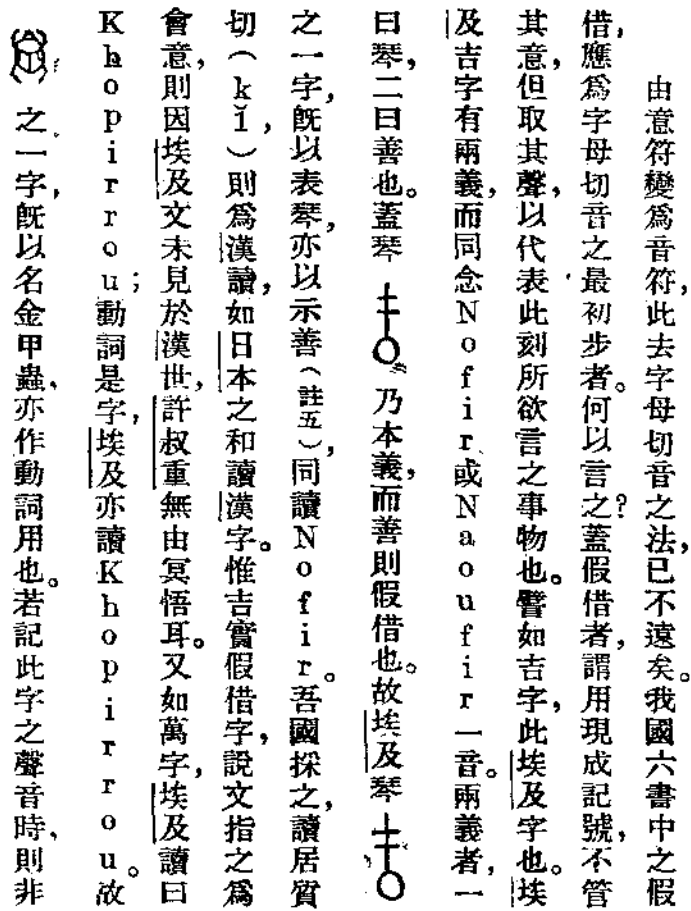 由意符變爲音符，此去字母切音之法，已不遠矣。我國六書中之假
借，應爲字母切音之最初步者。何以言之？蓋假借者，謂用現成記號，不管
其意，但取其聲，以代表此刻所欲言之事物也。譬如吉字，此埃及字也。埃
及吉字有兩義，而同念Nofir或Naoufir一音。兩義者，一
曰琴，二曰善也。蓋琴乃本義，而善則假借也。故埃及琴
之一字，旣以表琴，亦以示善（註五），同讀Nofir。吾國採之，讀居質
切（kǐ，）則爲漢讀，如日本之和讀漢字。惟吉實假借字，說文指之爲
會意，則因埃及文未見於漢世，許叔重無由冥悟耳。又如萬字，埃及讀曰
Khopirrou；動詞是字，埃及亦讀Khopirrou。故
之一字，旣以名金甲蟲，亦作動詞用也。若記此字之聲音時，則非